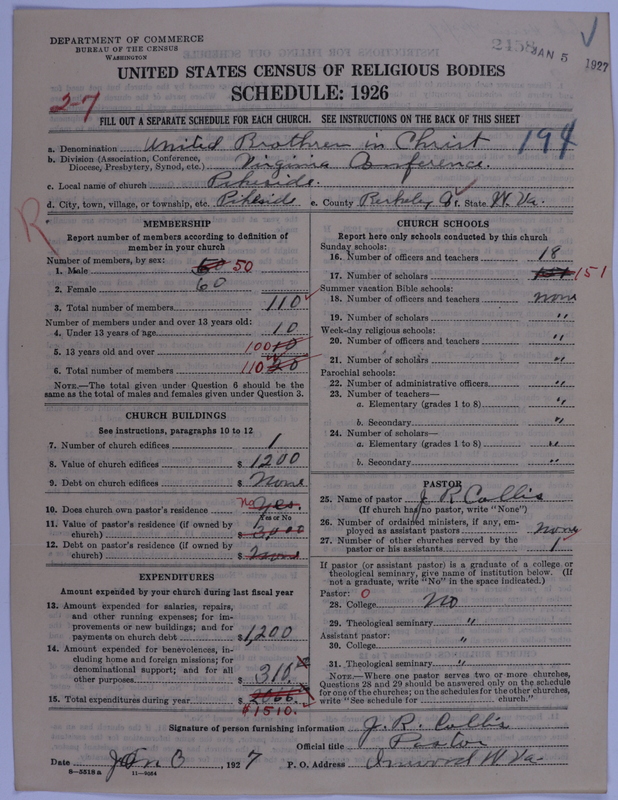 DEPARTMENT OF COMMERCE
BUREAU OF THE CENSUS
WASHINGTON
2458 JAN 5 1927
UNITED STATES CENSUS OF RELIGIOUS BODIES
SCHEDULE: 1926
2-7
FILL OUT A SEPARATE SCHEDULE FOR EACH CHURCH. SEE INSTRUCTIONS ON THE BACK OF THIS SHEET
194
a. Denomination United Brothren in Christ
b. Division (Association, Conference, Diocese, Presbytery, Synod, etc.) Virginia Conference.
c. Local name of church Pikeside.
d. City, town, village, or township, etc. Pikeside e. County Berkeley f. State W. Va.
R
MEMBERSHIP
Report number of members according to definition of
member in your church
Number of members, by sex:
1. Male 60 50
2. Female 60
3. Total number of members 110
Number of members under and over 13 years old:
4. Under 13 years of age 10
5. 13 years old and over 100
6. Total number of members 110
NOTE.—The total given under Question 6 should be
same as the total of males and females given under Question 3.
CHURCH BUILDINGS
See instructions, paragraphs 10 to 12
7. Number of church edifices 1
8. Value of church edifices $ 1200
9. Debt on church edifices $ None
10. Does church own pastor's residence no Yes.
Yes or No
11. Value of pastor's residence (if owned by
church) $ 3000
12. Debt on pastor's residence (if owned by
church) $ None
EXPENDITURES
Amount expended by your church during last fiscal year
13. Amount expended for salaries, repairs,
and other running expenses; for im-
provements or new buildings; and for
payments on church debt $ 1,200
14. Amount expended for benevolences, in-
cluding home and foreign missions; for
denominational support; and for all
other purposes $ 310.
15. Total expenditures during year $
$1510.
CHURCH SCHOOLS
Report here only schools conducted by this church
Sunday schools:
16. Number of officers and teachers 18
17. Number of scholars 151
Summer vacation Bible schools:
18. Number of officers and teachers none
19. Number of scholars "
Week-day religious schools:
20. Number of officers and teachers "
21. Number of scholars "
Parochial schools:
22. Number of administrative officers "
23. Number of teachers—
a. Elementary (grades 1 to 8) "
b. Secondary "
24. Number of scholars—
a. Elementary (grades 1 to 8) "
b. Secondary "
PASTOR
25. Name of pastor J. R. Collis
(If church has no pastor, write "None")
26. Number of ordained ministers, if any, em-
ployed as assistant pastors none
27. Number of other churches served by the
pastor or his assistants
If pastor (or assistant pastor) is a graduate of a college or
theological seminary, give name of institution below. (If
not a graduate, write "No" in the space indicated.)
Pastor: 0
28. College No
29. Theological seminary "
Assistant pastor:
30. College "
31. Theological seminary "
NOTE.—Where one pastor serves two or more churches,
Questions 28 and 29 should be answered only on the schedule
for one of the churches; on the schedules for the other churches,
write "See schedule for church."
Signature of person furnishing information J. R. Collis
Official title Pastor
Date Jan 3, 1927 P. O. Address Inwood W Va.
8-5518 a 11-9084